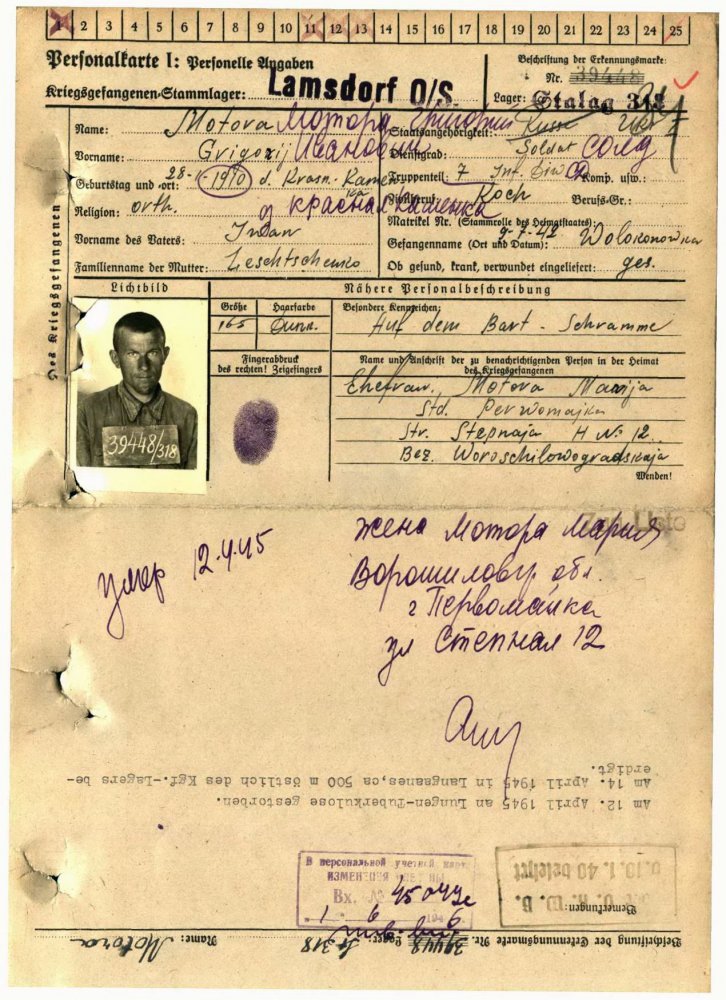 1 2 3 4 5 6 7 8 9 10 11 12 13 14 15 16 17 18 19 20 21 22 23 24 25
Personalkarte I: Personelle Angaben
Kriegsgefangenen-Stammlager: Lamsdorf O/S.
Beschriftung der Erkennungsmarke:
Nr. 39448
Lager: Stalag 318
Des Kriegsgefangenen
Name: Motora Мотора Григорий
Vorname: Grigorij Иванович
Geburtstag und -ort: 28- -1910 d. Krasn. Kamen
Religion: orth. д красная каменка
Vorname des Vaters: Iwan
Familienname der Mutter: Leschtschenko
Staatsangehörigkeit: Russe
Dienstgrad: Soldat солд
Truppenteil: 7 Inf. Div Komp. usw.:
Zivilberuf: Koch Berufs-Gr.:
Matrikel Nr. (Stammrolle des Heimatstaates):
Gefangennahme (Ort und Datum): 9-7-42 Wolokonowka
Ob gesund, krank, verwundet eingeliefert: ges.
Lichtbild
Nähere Personalbeschreibung
Größe Haarfarbe Besondere Kennzeichen:
165 Dunk. Auf dem Bart - Schramme
Fingerabdruck
des rechten! Zeigefingers
Name und Anschrift der zu benachrichtigenden Person in der Heimat
des Kriegsgefangenen
Ehefrau. Motora Marija
Std. Perwomajka
Str. Stepnaja H № 12
Bez. Woroschilowogradskaja
Wenden!
39448/318
Liste
жена Мотора Мария
Ворошиловгр. обл.
г Первомайка
ул Степная 12
умер 12.4.45
Am 12. April 1945 an Lungen-Tuberkulose gestorben.
Am 14. April 1945 in Langanes, ca 500 m östlich des Kgf.-Lagers be-
erdigt.
В персональной учетной карт
ИЗМЕНЕНИЯ
Вх. № 45044с
1 6 1946
Bemerkungen:
0.10.1.40 belehrt
Beschriftung der Erkennungsmarke Nr. 39448 Lager: St 318 Name: Motora